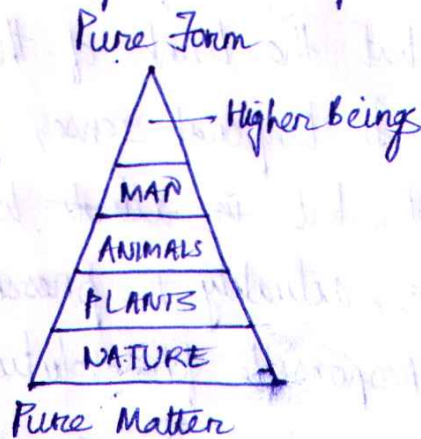 Pure Form
Higher Beings
MAN
ANIMALS
PLANTS
NATURE
Pure Matter